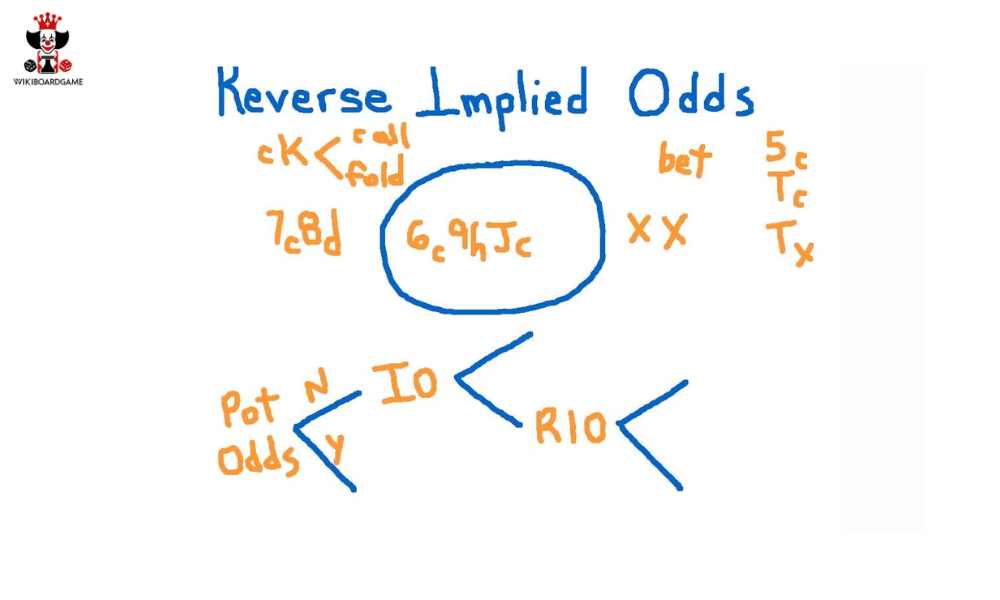 WIKIBOARDGAME
Reverse Implied Odds
cK call
fold
bet
5c
Tc
7c8d
6c9hJc
XX
Tx
Pot
Odds
N
Y
IO
RIO